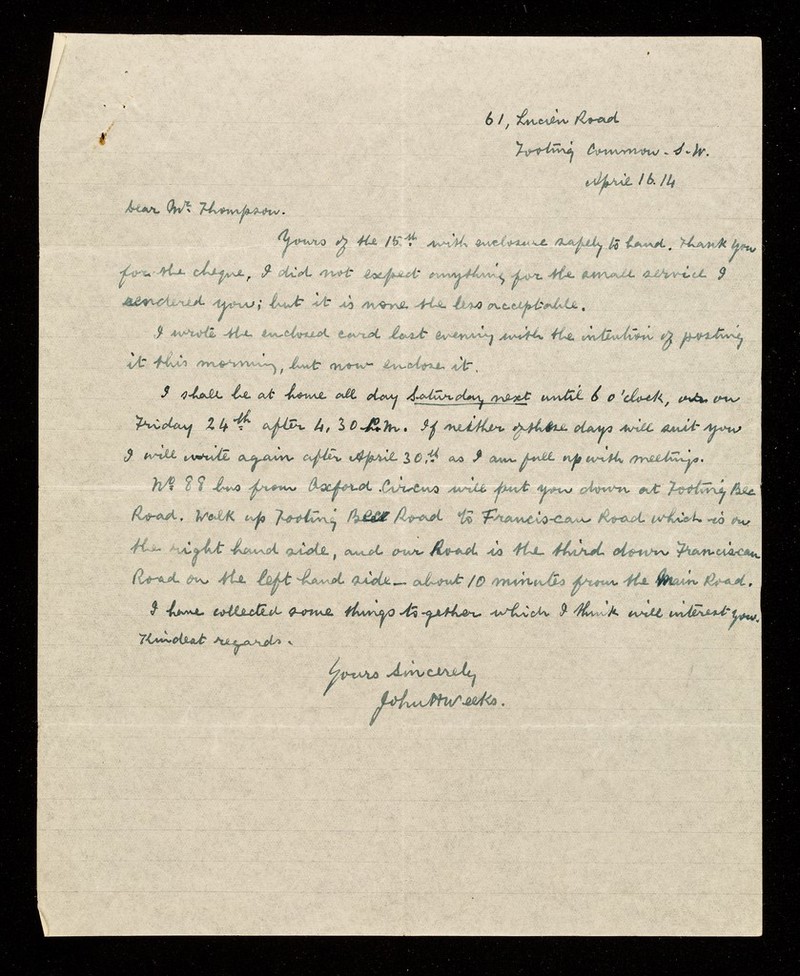 61, Lucien Road
Tooting Common. S.W.
April 16.14
Dear Mr. Thompson.
Yours of the 15th with enclosure safely to hand. Thank you
for the cheque, I did not expect anything for the small service I
rendered you; but it is none the less acceptable.
I wrote the enclosed card last evening with the intention of posting
it this morning, but now enclose it.
I shall be at home all day Saturday next until 6 o'clock, or on
Friday 24th after 4.30 P.M. If neither of these days will suit you
I will write again after April 30th as I am full up with meetings.
No 88 bus from Oxford Circus will put you down at Tooting Bec
Road. Walk up Tooting Bec Road to Franciscan Road which is on
the right hand side, and our Road is the third down Franciscan
Road on the left hand side - about 10 minutes from the Main Road.
I have collected some things to-gether which I think will interest you.
Kindest regards.
Yours Sincerely
John H Weeks.